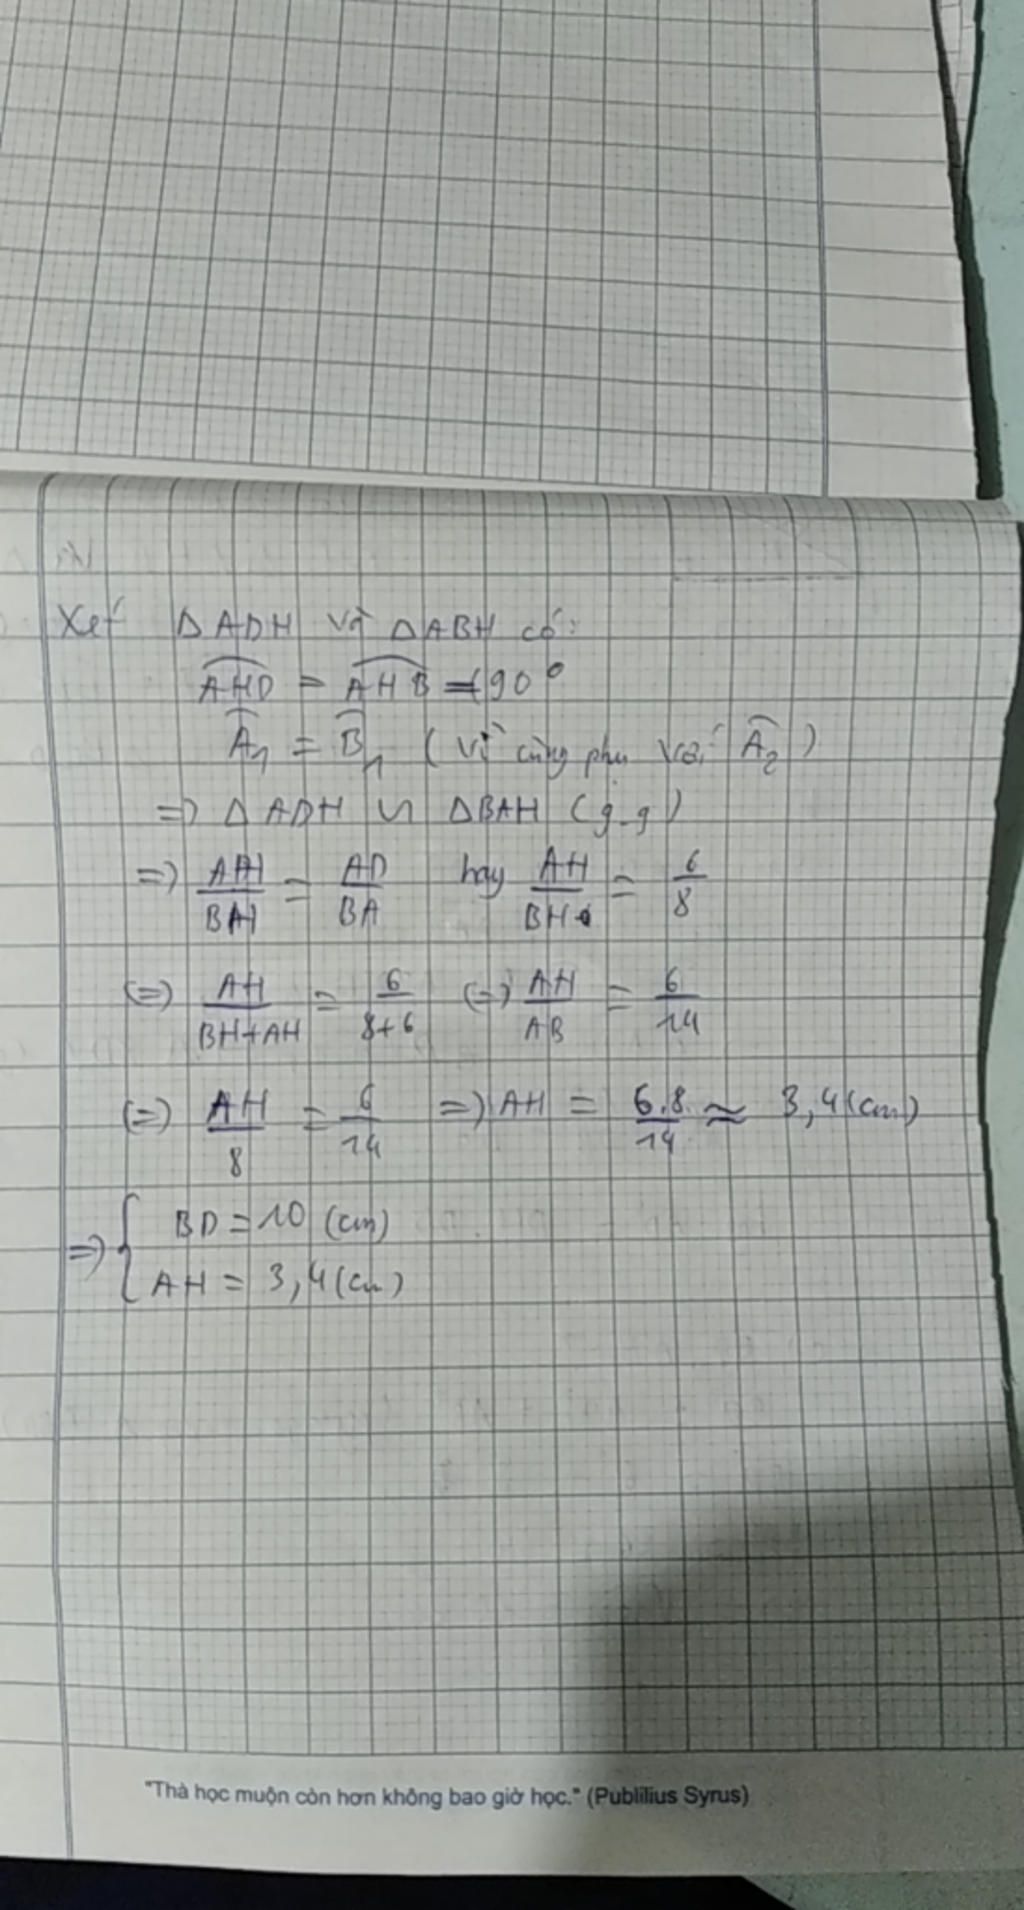 Xét ΔADH và ΔABH có:
AHD = AHB = 90°
A₁ = B₁ (Vì cùng phụ với A₂)
=> ΔADH ᔕ ΔBAH (g.g)
=> AH/BH = AD/BA hay AH/BH = 6/8
(=) AH/BH+AH = 6/8+6 (=) AH/AB = 6/14
(=) AH/8 = 6/14 => AH = 6.8/14 ≈ 3,4 (cm)
=> { BD = 10 (cm)
AH = 3,4 (cm)
"Thà học muộn còn hơn không bao giờ học." (Publilius Syrus)